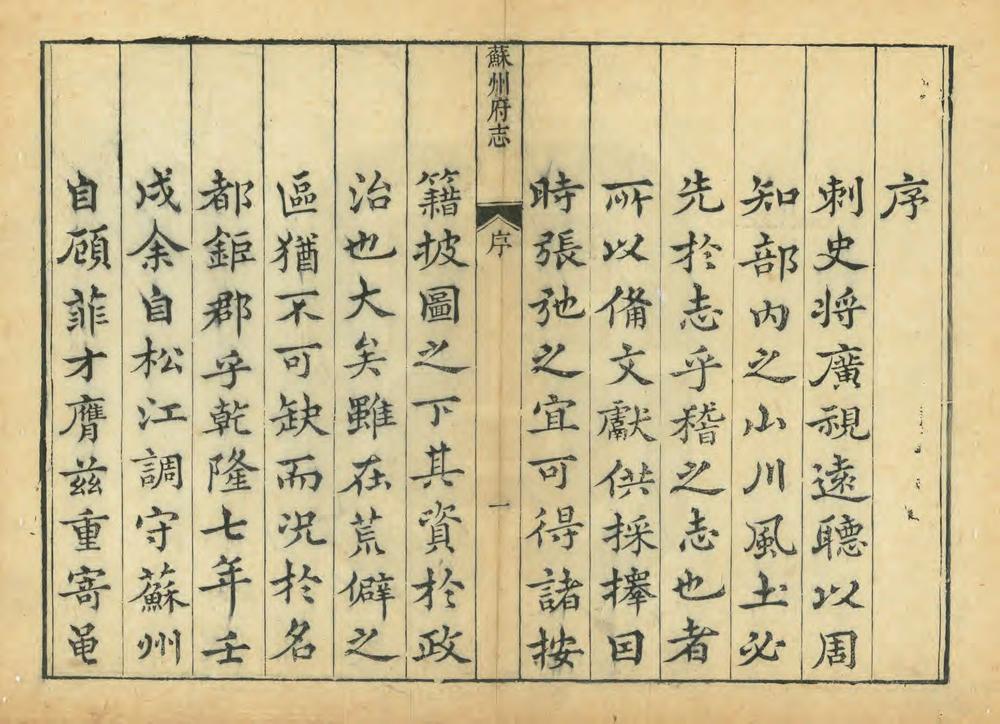 序
刺史将廣視遠聽以周
知部内之山川風土必
先於志乎稽之志也者
所以備文獻供採擇因
時張弛之宜可得諸按
蘇州府志
序
一
籍披圖之下其資於政
治也大矣雖在荒僻之
區猶不可缺而况於名
都鉅郡乎乾隆七年壬
戌余自松江調守蘇州
自顧菲才膺兹重寄黽